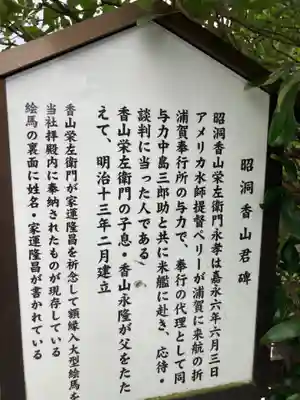 昭洞香山君碑
昭洞香山栄左衛門永孝は嘉永六年六月三日
アメリカ水師提督ペリーが浦賀に来航の折
浦賀奉行所の与力で、奉行の代理として同
与力中島三郎助と共に米艦に赴き、応待・
談判に当った人である。
香山栄左衛門の子息・香山永隆が父をたた
えて、明治十三年二月建立
香山栄左衛門が家運隆昌を祈念して額縁入大型絵馬を
当社拝殿内に奉納されたものが現存している
絵馬の裏面に姓名・家運隆昌が書かれている